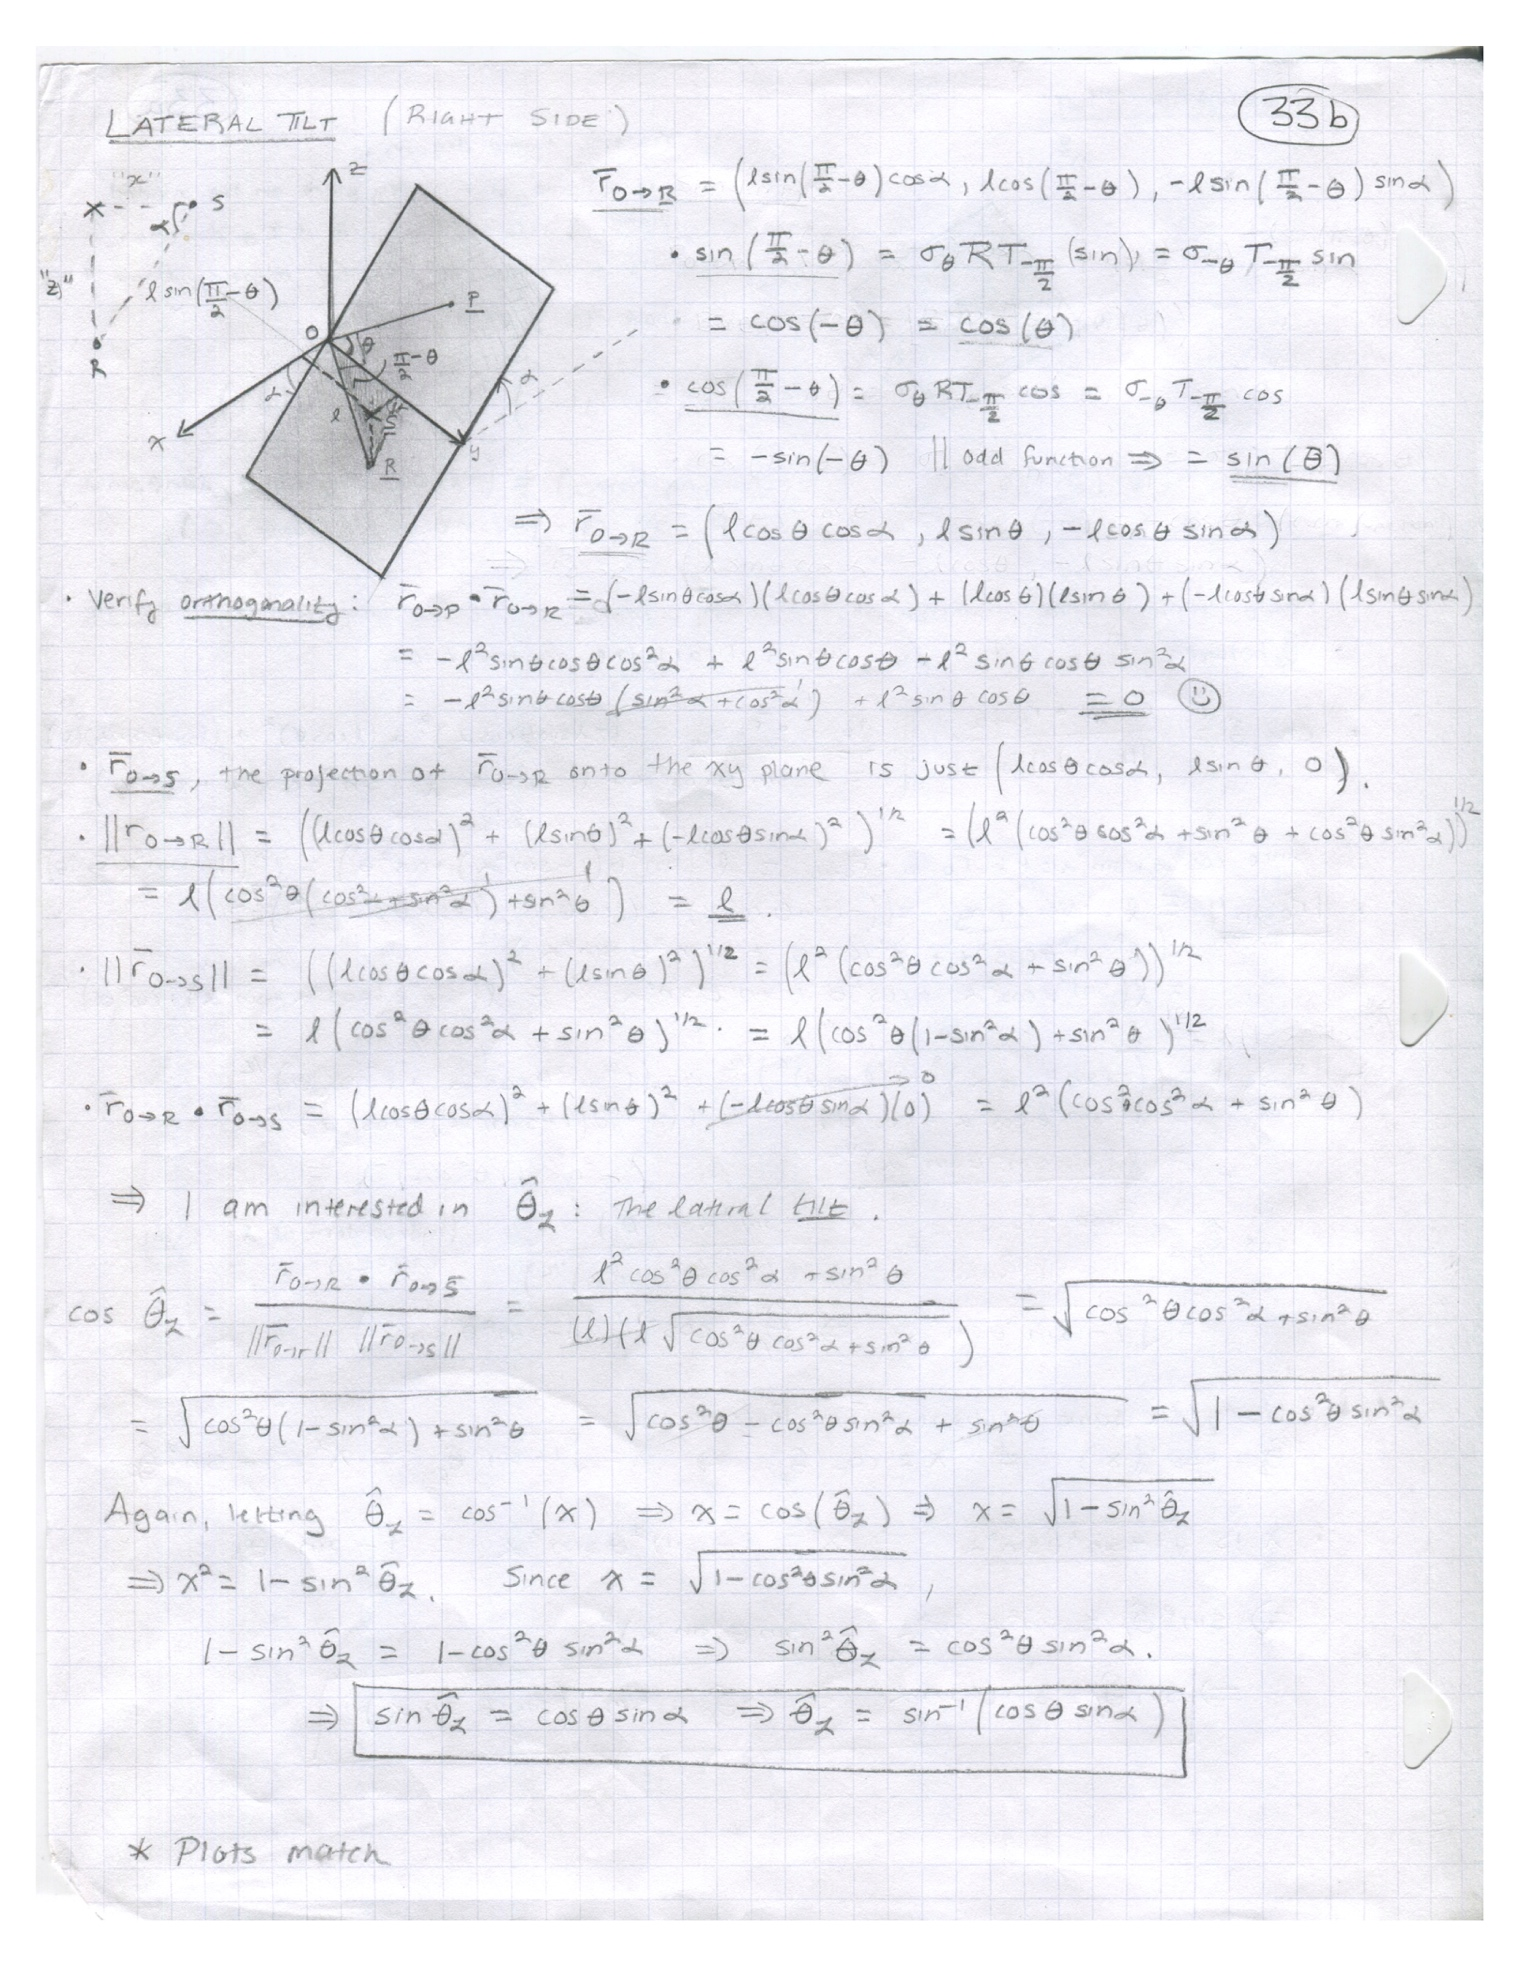 LATERAL TILT (RIGHT SIDE)
33b
"x"
S
α
"z"
l sin(π/2-θ)
R
z
O
P
θ
π/2-θ
α
α
l
S
R
x
y
r̄_O→R = (l sin(π/2-θ) cosα, l cos(π/2-θ), -l sin(π/2-θ) sinα)
• sin(π/2-θ) = σ_θ R T_-π/2 (sin) = σ_-θ T_-π/2 sin
= cos(-θ) = cos(θ)
• cos(π/2-θ) = σ_θ R T_-π/2 cos = σ_-θ T_-π/2 cos
= -sin(-θ) || odd function ⇒ = sin(θ)
⇒ r̄_O→R = (l cosθ cosα, l sinθ, -l cosθ sinα)
• Verify orthogonality: r̄_O→P • r̄_O→R = (-l sinθ cosα)(l cosθ cosα) + (l cosθ)(l sinθ) + (-l cosθ sinα)(l sinθ sinα)
= -l² sinθ cosθ cos²α + l² sinθ cosθ - l² sinθ cosθ sin²α
= -l² sinθ cosθ (sin²α + cos²α)¹ + l² sinθ cosθ = 0 ☺
• r̄_O→S, the projection of r̄_O→R onto the xy plane is just (l cosθ cosα, l sinθ, 0).
• ||r_O→R|| = ((l cosθ cosα)² + (l sinθ)² + (-l cosθ sinα)²)^1/2 = (l²(cos²θ cos²α + sin²θ + cos²θ sin²α))^1/2
= l(cos²θ(cos²α + sin²α)¹ + sin²θ)¹ = l.
• ||r̄_O→S|| = ((l cosθ cosα)² + (l sinθ)²)^1/2 = (l²(cos²θ cos²α + sin²θ))^1/2
= l(cos²θ cos²α + sin²θ)^1/2. = l(cos²θ(1-sin²α) + sin²θ)^1/2
• r̄_O→R • r̄_O→S = (l cosθ cosα)² + (l sinθ)² + (-l cosθ sinα)(0) → 0 = l²(cos²θ cos²α + sin²θ)
⇒ I am interested in θ̂_z: The lateral tilt.
cos θ̂_z = r̄_O→R • r̄_O→S / ||r̄_O→r|| ||r̄_O→S|| = l² cos²θ cos²α + sin²θ / (l)(l √(cos²θ cos²α + sin²θ)) = √(cos²θ cos²α + sin²θ)
= √(cos²θ(1-sin²α) + sin²θ) = √(cos²θ - cos²θ sin²α + sin²θ) = √(1 - cos²θ sin²α)
Again, letting θ̂_z = cos⁻¹(x) ⇒ x = cos(θ̂_z) ⇒ x = √(1-sin²θ̂_z)
⇒ x² = 1-sin²θ̂_z. Since x = √(1-cos²θ sin²α),
1-sin²θ̂_z = 1-cos²θ sin²α ⇒ sin²θ̂_z = cos²θ sin²α.
⇒ sin θ̂_z = cosθ sinα ⇒ θ̂_z = sin⁻¹(cosθ sinα)
* Plots match